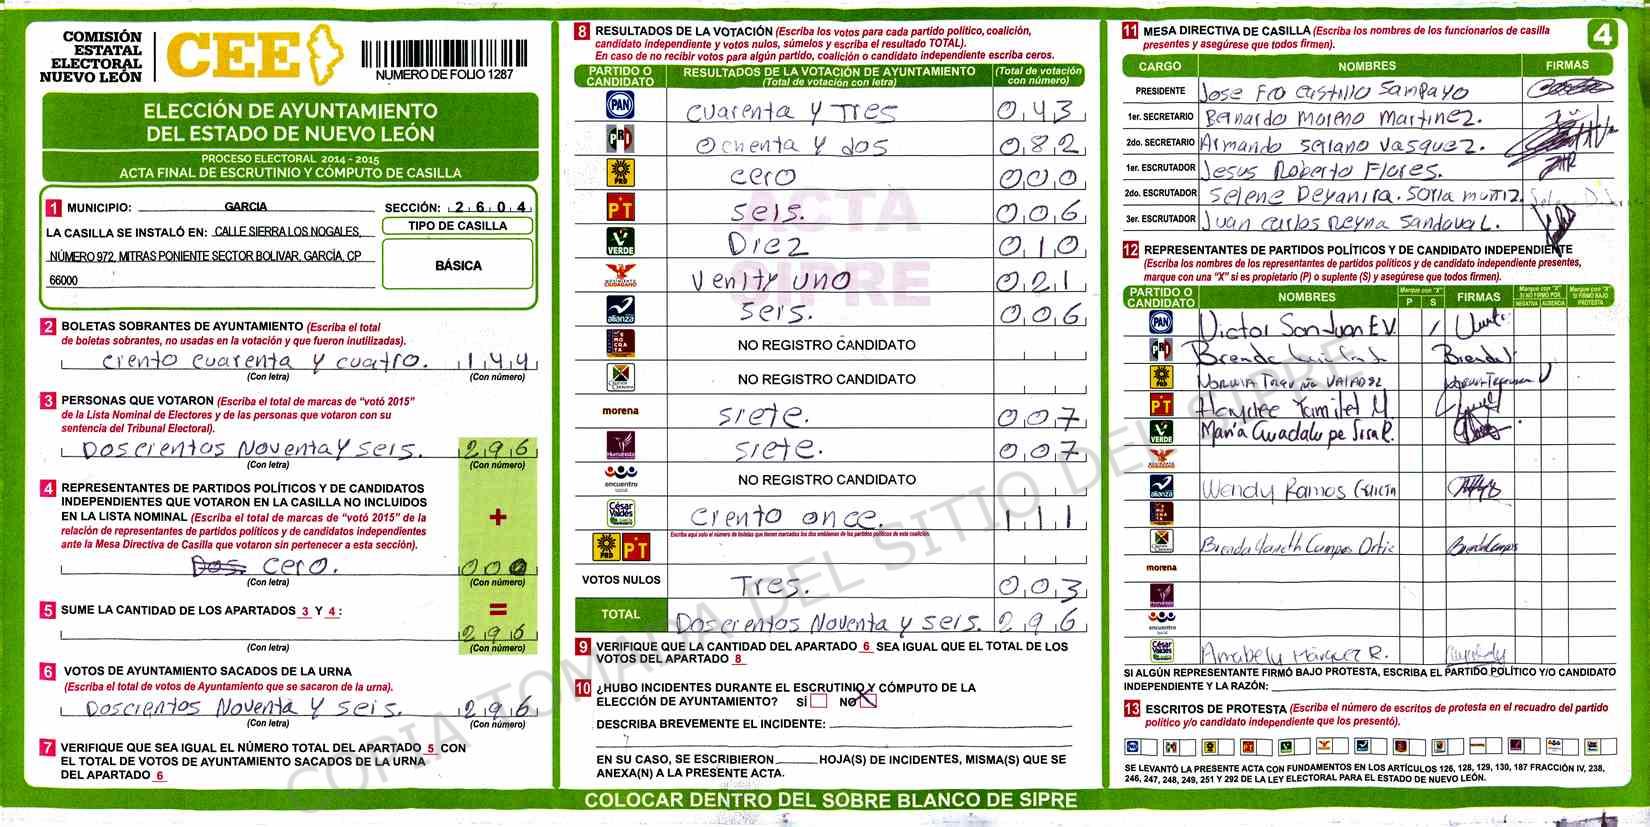 COMISIÓN
ESTATAL
ELECTORAL
NUEVO LEÓN
CEE
NUMERO DE FOLIO 1287
ELECCIÓN DE AYUNTAMIENTO
DEL ESTADO DE NUEVO LEÓN
PROCESO ELECTORAL 2014 - 2015
ACTA FINAL DE ESCRUTINIO Y CÓMPUTO DE CASILLA
1 MUNICIPIO: GARCIA SECCIÓN: 2604
LA CASILLA SE INSTALÓ EN: CALLE SIERRA LOS NOGALES,
NÚMERO 972, MITRAS PONIENTE SECTOR BOLIVAR, GARCÍA, CP
66000
TIPO DE CASILLA
BÁSICA
2 BOLETAS SOBRANTES DE AYUNTAMIENTO (Escriba el total
de boletas sobrantes, no usadas en la votación y que fueron inutilizadas).
Ciento cuarenta y cuatro. 144
(Con letra) (Con número)
3 PERSONAS QUE VOTARON (Escriba el total de marcas de “votó 2015”
de la Lista Nominal de Electores y de las personas que votaron con su
sentencia del Tribunal Electoral).
Doscientos Noventa y seis. 296
(Con letra) (Con número)
4 REPRESENTANTES DE PARTIDOS POLÍTICOS Y DE CANDIDATOS
INDEPENDIENTES QUE VOTARON EN LA CASILLA NO INCLUIDOS
EN LA LISTA NOMINAL (Escriba el total de marcas de “votó 2015” de la
relación de representantes de partidos políticos y de candidatos independientes
ante la Mesa Directiva de Casilla que votaron sin pertenecer a esta sección).
+
Dos. cero. 000
(Con letra) (Con número)
5 SUME LA CANTIDAD DE LOS APARTADOS 3 Y 4:
=
296
(Con letra) (Con número)
6 VOTOS DE AYUNTAMIENTO SACADOS DE LA URNA
(Escriba el total de votos de Ayuntamiento que se sacaron de la urna).
Doscientos Noventa y seis. 296
(Con letra) (Con número)
7 VERIFIQUE QUE SEA IGUAL EL NÚMERO TOTAL DEL APARTADO 5 CON
EL TOTAL DE VOTOS DE AYUNTAMIENTO SACADOS DE LA URNA
DEL APARTADO 6
8 RESULTADOS DE LA VOTACIÓN (Escriba los votos para cada partido político, coalición,
candidato independiente y votos nulos, súmelos y escriba el resultado TOTAL).
En caso de no recibir votos para algún partido, coalición o candidato independiente escriba ceros.
PARTIDO O CANDIDATO RESULTADOS DE LA VOTACIÓN DE AYUNTAMIENTO (Total de votación con letra) (Total de votación con número)
PAN cuarenta y Tres 043
PRI Ochenta y dos 082
PRD cero 000
PT seis. 006
VERDE Diez 010
MOVIMIENTO CIUDADANO Venity uno 021
alianza seis. 006
NO REGISTRO CANDIDATO
NO REGISTRO CANDIDATO
morena siete. 007
Humanista siete. 007
encuentro social NO REGISTRO CANDIDATO
César Valdés Ciento once. 111
Escriba aquí solo el número de boletas que tienen marcados los dos emblemas de los partidos políticos de esta coalición.
PRD PT
VOTOS NULOS Tres. 003
TOTAL Doscientos Noventa y seis. 296
ACTA
SIPRE
9 VERIFIQUE QUE LA CANTIDAD DEL APARTADO 6 SEA IGUAL QUE EL TOTAL DE LOS
VOTOS DEL APARTADO 8
10 ¿HUBO INCIDENTES DURANTE EL ESCRUTINIO Y CÓMPUTO DE LA
ELECCIÓN DE AYUNTAMIENTO? SÍ NO X
DESCRIBA BREVEMENTE EL INCIDENTE:
EN SU CASO, SE ESCRIBIERON HOJA(S) DE INCIDENTES, MISMA(S) QUE SE
ANEXA(N) A LA PRESENTE ACTA.
COLOCAR DENTRO DEL SOBRE BLANCO DE SIPRE
4
11 MESA DIRECTIVA DE CASILLA (Escriba los nombres de los funcionarios de casilla
presentes y asegúrese que todos firmen).
CARGO NOMBRES FIRMAS
PRESIDENTE Jose Fco Castillo Sampayo
1er. SECRETARIO Bernardo Moreno Martinez.
2do. SECRETARIO Armando Serano Vasquez.
1er. ESCRUTADOR Jesus Roberto Flores.
2do. ESCRUTADOR Selene Deyanira. Soria muñiz.
3er. ESCRUTADOR Juan Carlos Reyna Sandoval.
12 REPRESENTANTES DE PARTIDOS POLÍTICOS Y DE CANDIDATO INDEPENDIENTE
(Escriba los nombres de los representantes de partidos políticos y de candidato independiente presentes,
marque con una “X” si es propietario (P) o suplente (S) y asegúrese que todos firmen).
PARTIDO O CANDIDATO NOMBRES Marque con "X" P S FIRMAS Marque con "X" SI NO FIRMÓ POR NEGATIVA AUSENCIA Marque con "X" SI FIRMÓ BAJO PROTESTA
PAN Victor San Juan E.V. /
PRI Brenda
PRD Norma Treviño Valadez
PT Haydee Yamilet M.
VERDE Maria Guadalupe Sosa R.
alianza Wendy Ramos Garcia
Brenda Janeth Campos Ortiz Brenda Campos
morena
encuentro social
César Valdés Annabely Marquez R.
SI ALGÚN REPRESENTANTE FIRMÓ BAJO PROTESTA, ESCRIBA EL PARTIDO POLÍTICO Y/O CANDIDATO
INDEPENDIENTE Y LA RAZÓN:
13 ESCRITOS DE PROTESTA (Escriba el número de escritos de protesta en el recuadro del partido
político y/o candidato independiente que los presentó).
SE LEVANTÓ LA PRESENTE ACTA CON FUNDAMENTOS EN LOS ARTÍCULOS 126, 128, 129, 130, 187 FRACCIÓN IV, 238,
246, 247, 248, 249, 251 Y 292 DE LA LEY ELECTORAL PARA EL ESTADO DE NUEVO LEÓN.
COPIA TOMADA DEL SITIO DEL SIPRE